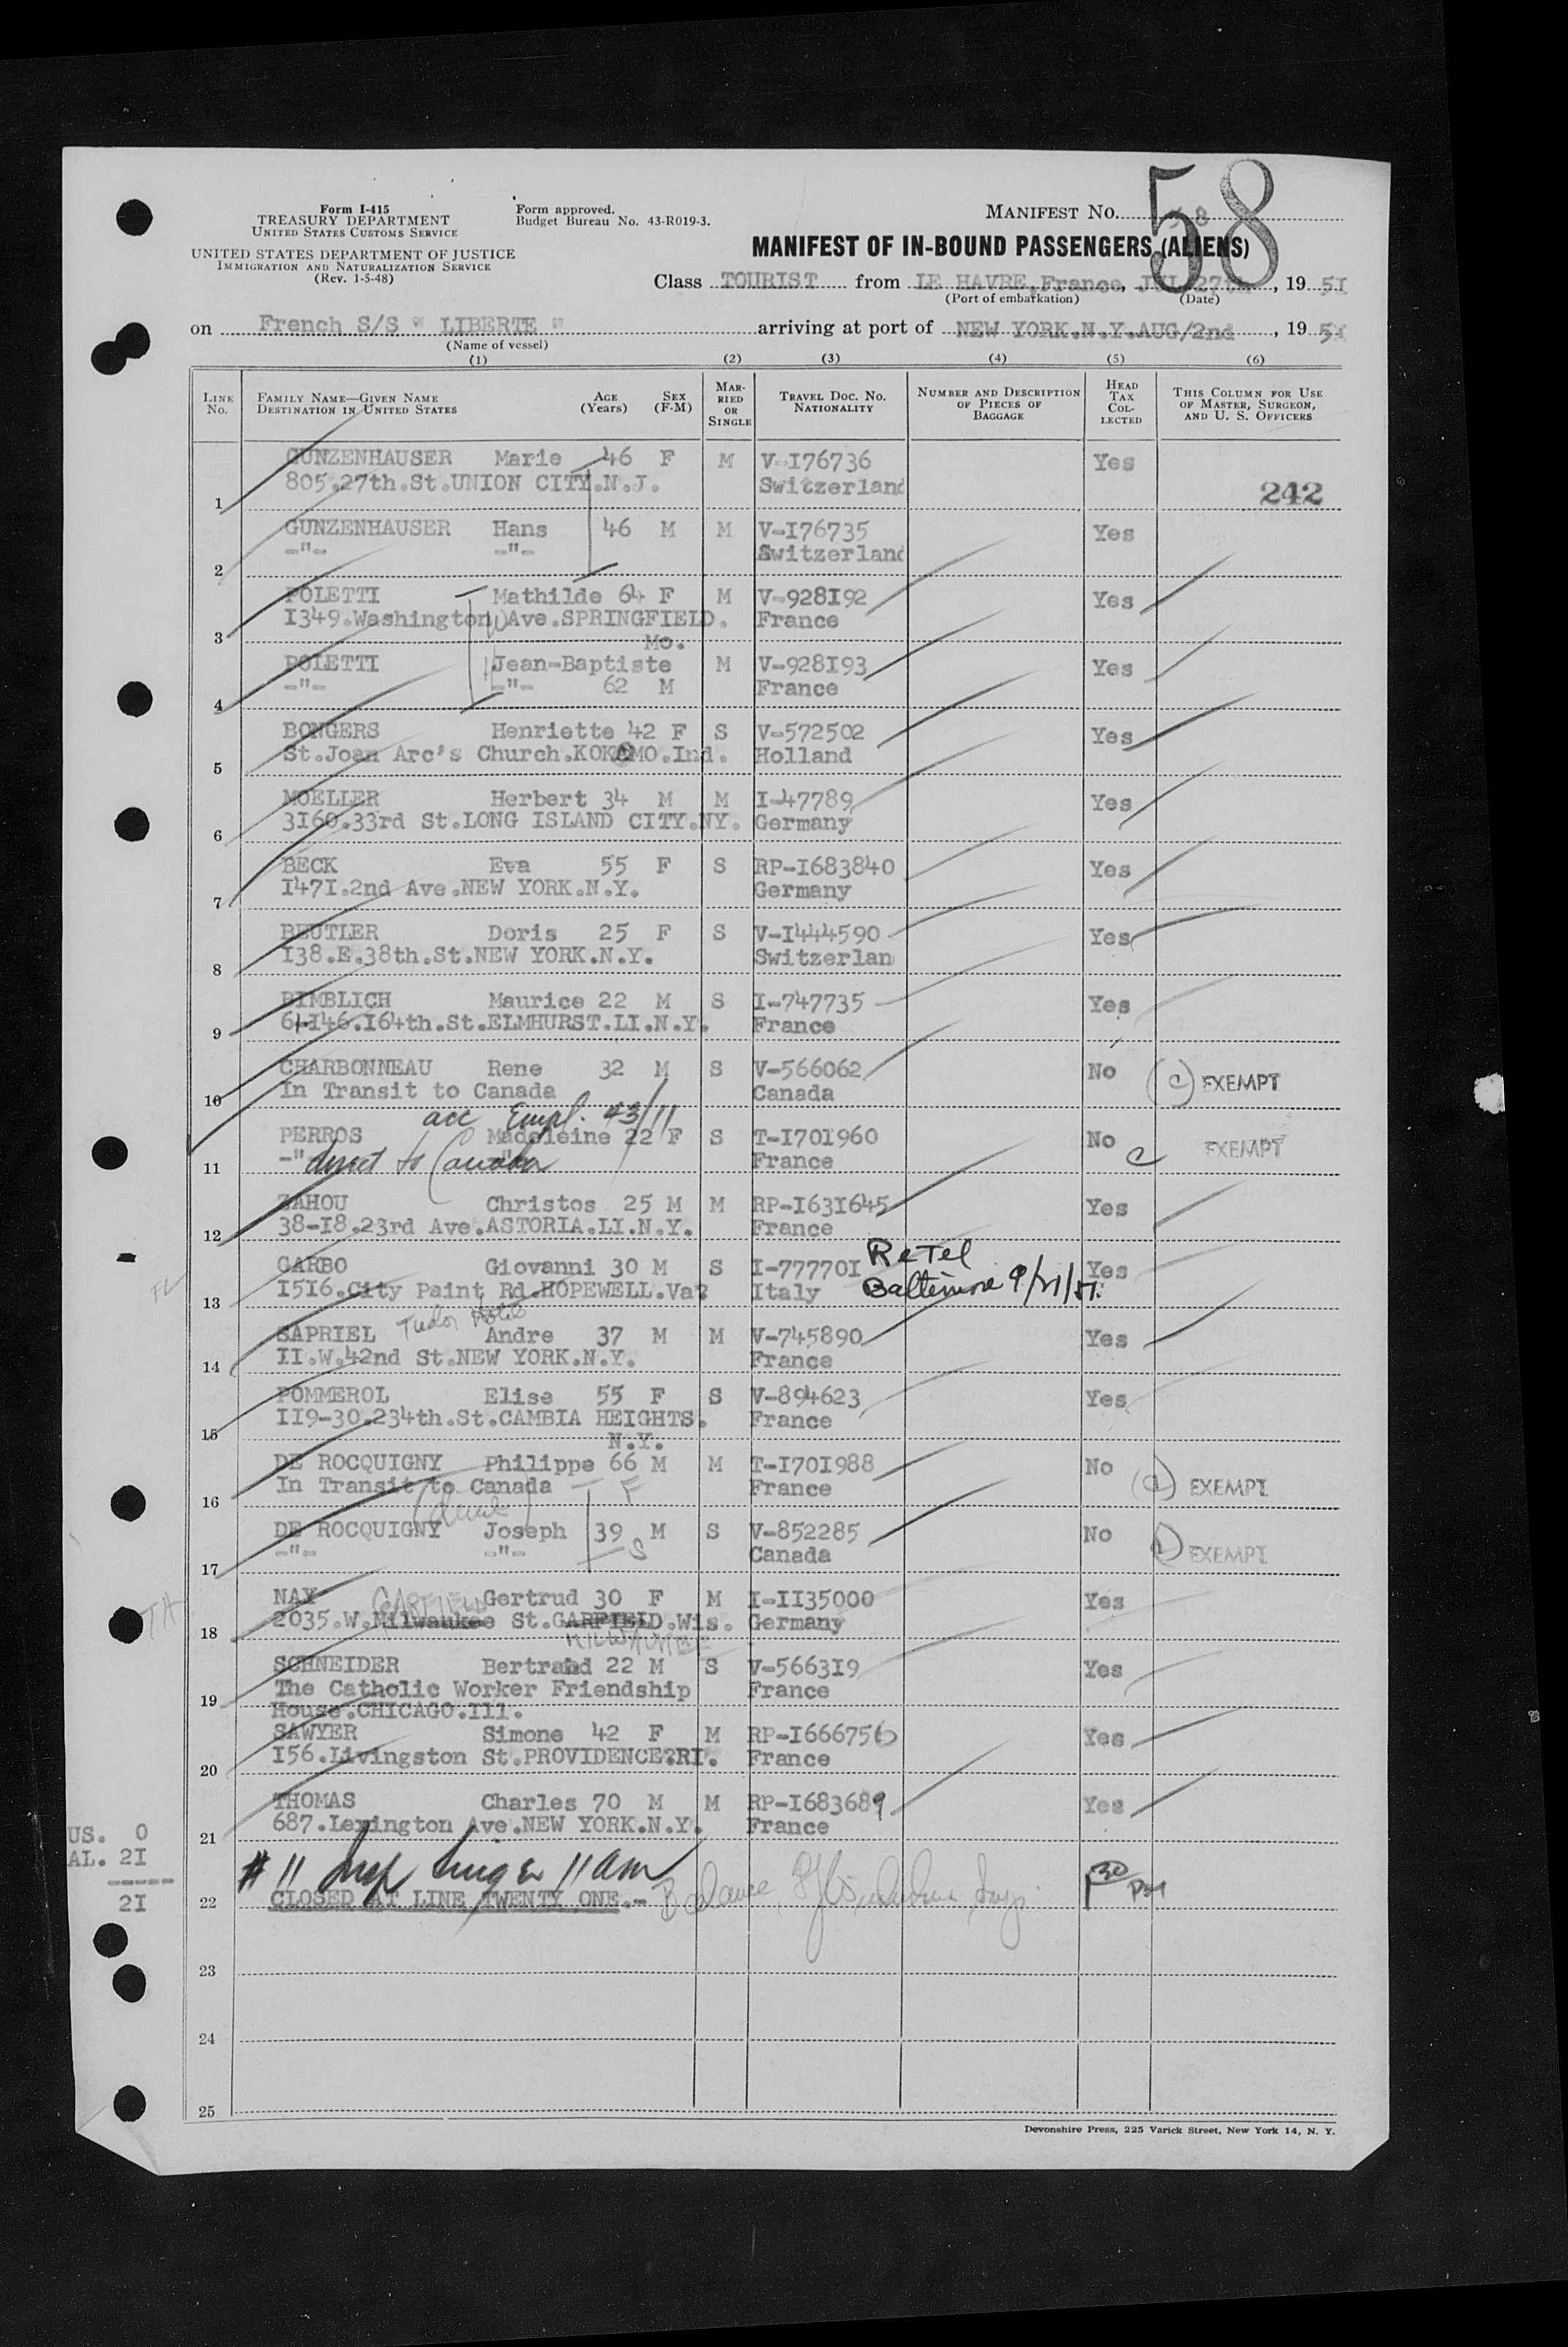 Form I-415
TREASURY DEPARTMENT
UNITED STATES CUSTOMS SERVICE
UNITED STATES DEPARTMENT OF JUSTICE
IMMIGRATION AND NATURALIZATION SERVICE
(Rev. 1-5-48)
Form approved.
Budget Bureau No. 43-R019-3.
MANIFEST NO. 58
58
MANIFEST OF IN-BOUND PASSENGERS (ALIENS)
Class TOURIST from LE HAVRE.France, JUL 27th, 19 5I
(Port of embarkation) (Date)
on French S/S " LIBERTE " arriving at port of NEW YORK.N.Y.AUG/2nd, 19 5I
(Name of vessel)
(1) (2) (3) (4) (5) (6)
LINE NO. FAMILY NAME—GIVEN NAME DESTINATION IN UNITED STATES AGE (YEARS) SEX (F-M) MARRIED OR SINGLE TRAVEL DOC. NO. NATIONALITY NUMBER AND DESCRIPTION OF PIECES OF BAGGAGE HEAD TAX COLLECTED THIS COLUMN FOR USE OF MASTER, SURGEON, AND U. S. OFFICERS
GUNZENHAUSER Marie 46 F M V-I76736 Yes
1 805.27th.St.UNION CITY.N.J. Switzerland 242
GUNZENHAUSER Hans 46 M M V-I76735 Yes
2 -"- -"- Switzerland
POLETTI Mathilde 64 F M V-928I92 Yes
3 I349.Washington Ave.SPRINGFIELD. France
Mo.
POLETTI Jean-Baptiste M V-928I93 Yes
4 -"- -"- 62 M France
BONGERS Henriette 42 F S V-572502 Yes
5 St.Joan Arc's Church.KOKOMO.Ind. Holland
MOELLER Herbert 34 M M I-47789 Yes
6 3I60.33rd St.LONG ISLAND CITY.NY. Germany
BECK Eva 55 F S RP-I683840 Yes
7 I47I.2nd Ave.NEW YORK.N.Y. Germany
BEUTLER Doris 25 F S V-I444590 Yes
8 I38.E.38th.St.NEW YORK.N.Y. Switzerlan
BIMBLICH Maurice 22 M S I-747735 Yes
9 64-I46.I64th.St.ELMHURST.LI.N.Y. France
CHARBONNEAU Rene 32 M S V-566062 No (c) EXEMPT
10 In Transit to Canada Canada
acc Empl. 43/11
PERROS Madeleine 22 F S T-I70I960 No c EXEMPT
11 -"- direct to Canada France
ZAHOU Christos 25 M M RP-I63I645 Yes
12 38-I8.23rd Ave.ASTORIA.LI.N.Y. France
CARBO Giovanni 30 M S I-77770I ReTel Yes
13 I5I6.City Paint Rd.HOPEWELL.Va? Italy Baltimore 9/21/51.
Tudor Hotel
SAPRIEL Andre 37 M M V-745890 Yes
14 II.W.42nd St.NEW YORK.N.Y. France
POMMEROL Elise 55 F S V-894623 Yes
15 II9-30.234th.St.CAMBIA HEIGHTS. France
N.Y.
DE ROCQUIGNY Philippe 66 M M T-I70I988 No EXEMPT
16 In Transit to Canada F France
DE ROCQUIGNY Joseph 39 M S V-852285 No EXEMPT
17 -"- -"- S Canada
NAY GARFIELD Gertrud 30 F M I-II35000 Yes
18 2035.W.Milwaukee St.GARFIELD.Wis. Germany
MILWAUKEE
SCHNEIDER Bertrand 22 M S V-5663I9 Yes
19 The Catholic Worker Friendship France
House.CHICAGO.Ill.
SAWYER Simone 42 F M RP-I666756 Yes
20 I56.Livingston St.PROVIDENCE?RI. France
THOMAS Charles 70 M M RP-I683689 Yes
21 687.Lexington Ave.NEW YORK.N.Y. France
US. 0
AL. 2I
-----
2I
#11 11 am
22 CLOSED AT LINE TWENTY ONE.- Balance
23
24
25
Devonshire Press, 225 Varick Street, New York 14, N. Y.